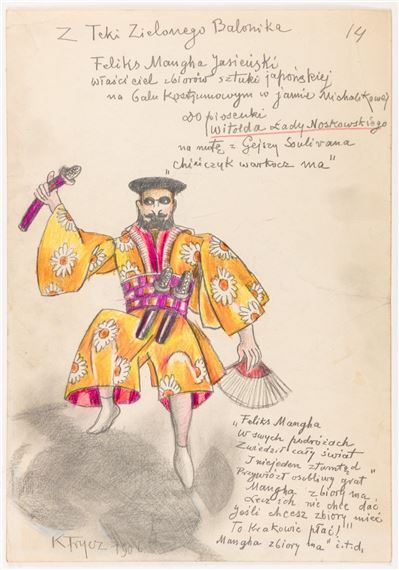 Z Teki Zielonego Balonika
14
Feliks Mangha Jasieński
właściciel zbiorów sztuki japońskiej
na Balu Kostjumowym w jamie Michalikowej
do piosenki
Witolda Łady Noskowskiego
na nutę z Gejszy Soulivana
„Chińczyk warkocz ma"
„Feliks Mangha
W swych podróżach
Zwiedził cały świat
I niejeden ztamtąd
Przywiózł osobliwy grat"
Mangha zbiory ma,
Lecz ich nie chce dać
Jeśli chcesz zbiory mieć
To Krakowie płać!"
Mangha zbiory ma" i.t.d.
K Frycz 1906